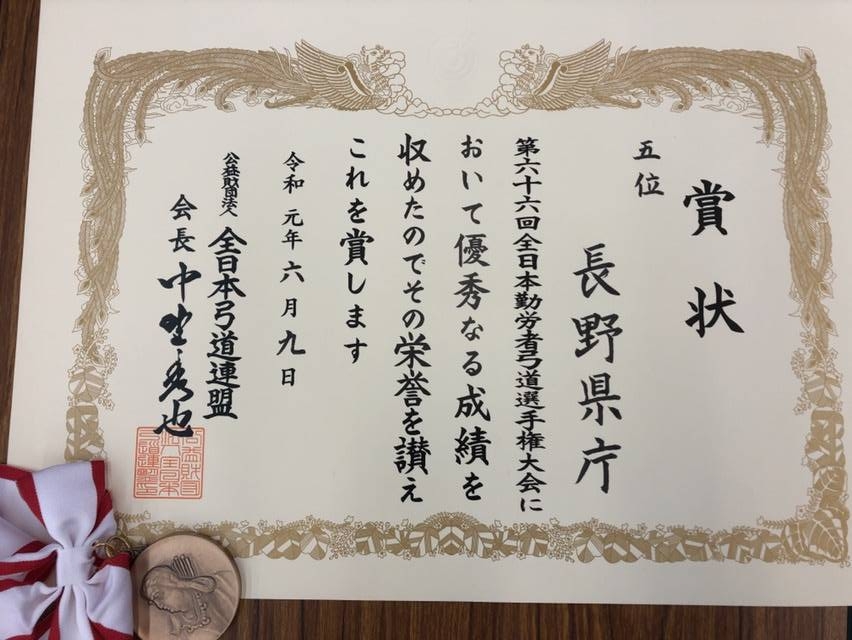 賞状
五位
長野県庁
第六十六回全日本勤労者弓道選手権大会に
おいて優秀なる成績を
収めたのでその栄誉を讃え
これを賞します
令和元年六月九日
公益財団法人
全日本弓道連盟
会長 中 秀也